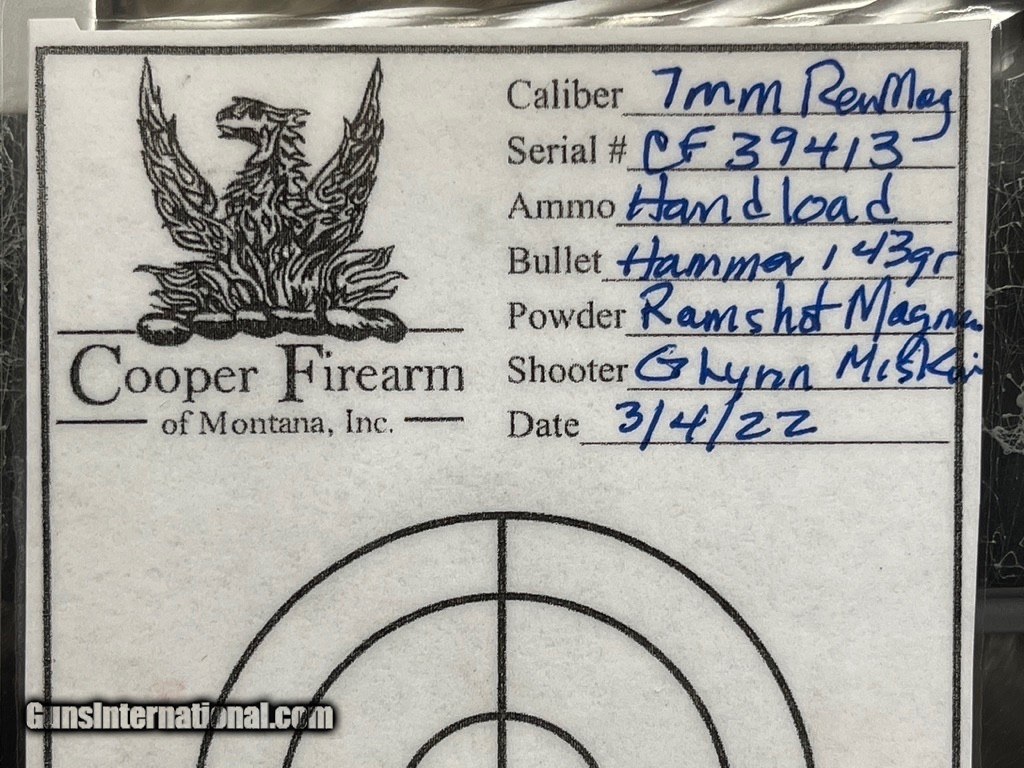 Caliber 7mm RemMag
Serial # CF 39413
Ammo Handload
Bullet Hammer 143gr
Powder Ramshot Magnum
Shooter Glynn
Date 3/4/22
Cooper Firearm
of Montana, Inc.
GunsInternational.com